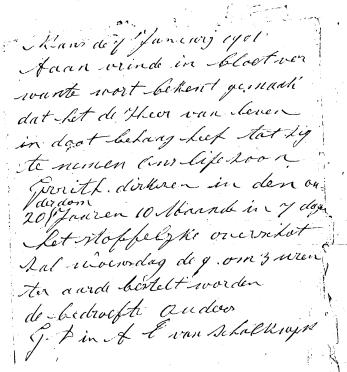 Mans de 7 Januwij 1901
Aaan vrinde in bloetver
wante wort bekent gemaakt
dat het de Heer van leven
in doot behaag heef tot zig
te nemen ons life zoon
Gerrith. dirksen in den ou
derdom
20 Jaaren 10 Maande in 7 dage
het stoffelyke overschot
zal woensdag de 9 om 3 uren
ter aarde bestelt worden
de bedroefte ouders
G. D in A E van Schalkwyk